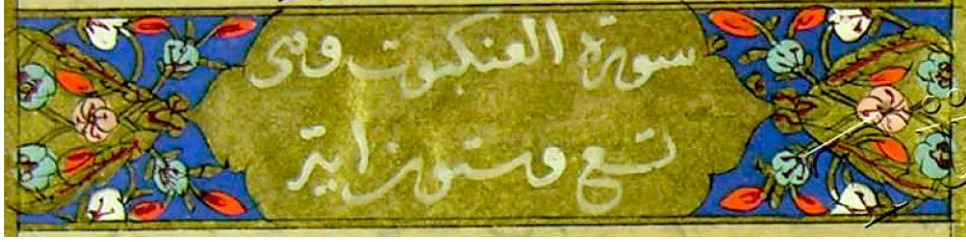 سورة العنكبوت وهى
تسع وستون اية